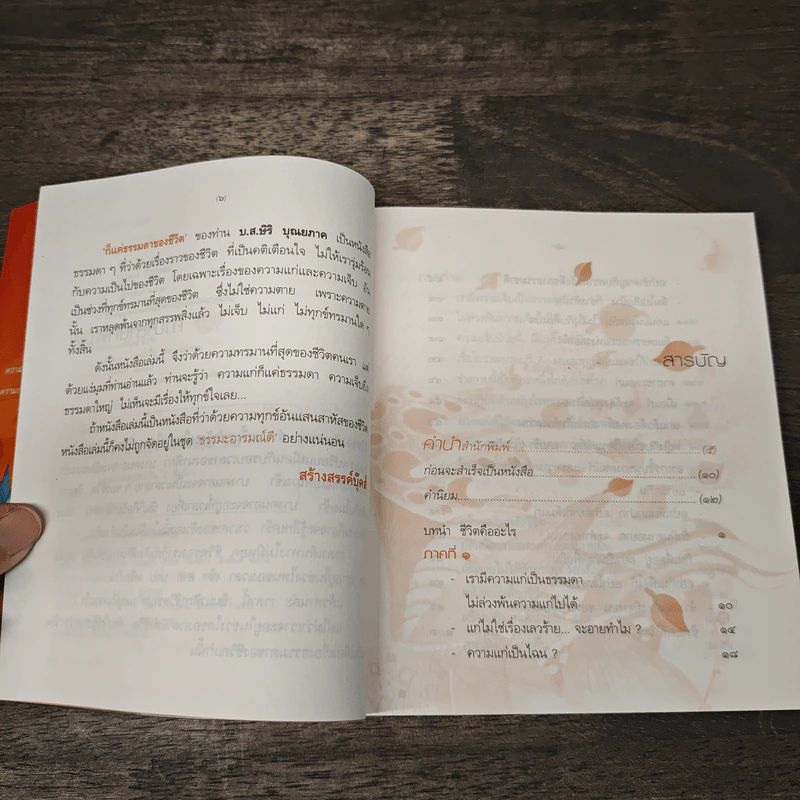 (๖)
'ก็แค่ธรรมดาของชีวิต' ของท่าน บ.ส.ษิริ บุณยภาค เป็นหนังสือ
ธรรมดา ๆ ที่ว่าด้วยเรื่องราวของชีวิต ที่เป็นคติเตือนใจ ไม่ให้เรารุ่มร้อน
กับความเป็นไปของชีวิต โดยเฉพาะเรื่องของความแก่และความเจ็บ อัน
เป็นช่วงที่ทุกข์ทรมานที่สุดของชีวิต ซึ่งไม่ใช่ความตาย เพราะความตาย
นั้น เราหลุดพ้นจากทุกสรรพสิ่งแล้ว ไม่เจ็บ ไม่แก่ ไม่ทุกข์ทรมานใด ๆ
ทั้งสิ้น
ดังนั้นหนังสือเล่มนี้ จึงว่าด้วยความทรมานที่สุดของชีวิตคนเรา
ด้วยแง่มุมที่ท่านอ่านแล้ว ท่านจะรู้ว่า ความแก่ก็แค่ธรรมดา ความเจ็บยิ่ง
ธรรมดาใหญ่ ไม่เห็นจะมีเรื่องให้ทุกข์ใจเลย...
ถ้าหนังสือเล่มนี้เป็นหนังสือที่ว่าด้วยความทุกข์อันแสนสาหัสของชีวิต
หนังสือเล่มนี้ก็คงไม่ถูกจัดอยู่ในชุด 'ธรรมะอารมณ์ดี' อย่างแน่นอน
สร้างสรรค์บุ๊คส์
สารบัญ
คำนำสำนักพิมพ์ (๕)
ก่อนจะสำเร็จเป็นหนังสือ (๑๐)
คำนิยม (๑๒)
บทนำ ชีวิตคืออะไร ๑
ภาคที่ ๑
- เรามีความแก่เป็นธรรมดา
ไม่ล่วงพ้นความแก่ไปได้ ๑๐
- แก่ไม่ใช่เรื่องเลวร้าย... จะอายทำไม ? ๑๔
- ความแก่เป็นไฉน ? ๑๘